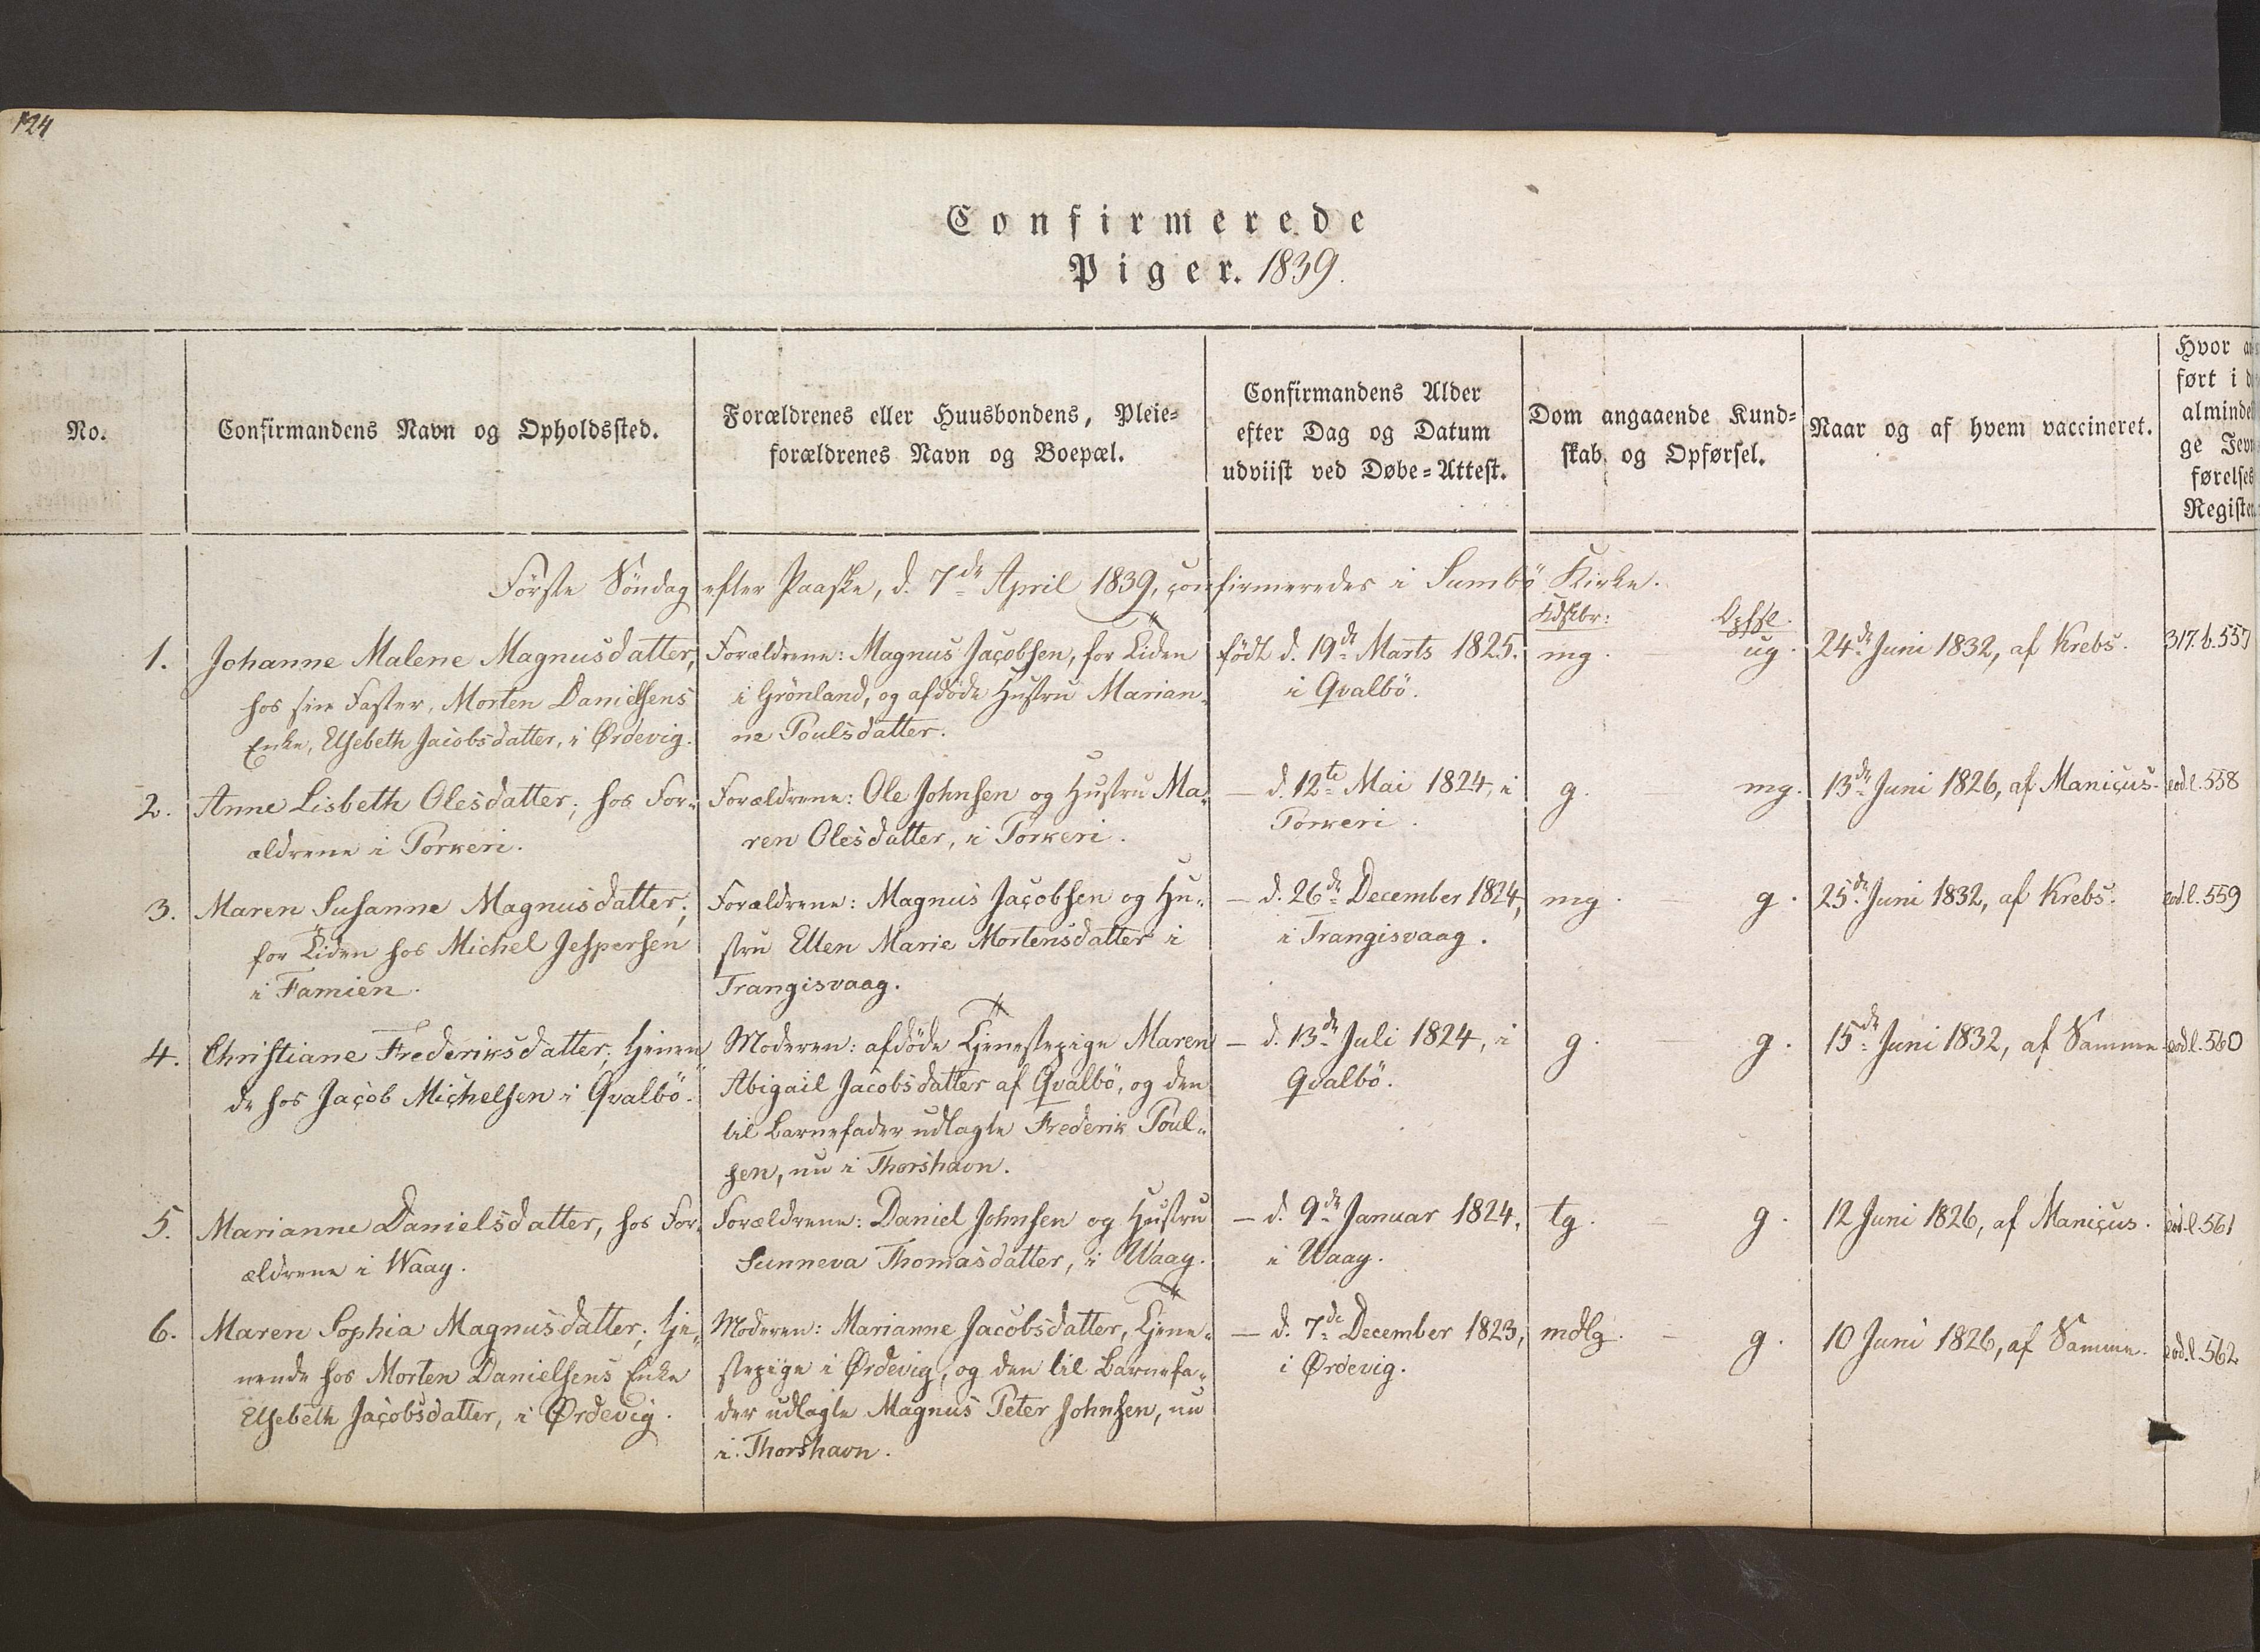 124
Confirmerede
Piger. 1839.
No.
Confirmandens Navn og Opholdssted.
Forældrenes eller Huusbondens, Pleie-
forældrenes Navn og Boepæl.
Confirmandens Alder
efter Dag og Datum
udviist ved Døbe-Attest.
Dom angaaende Kund-
skab og Opførsel.
Naar og af hvem vaccineret.
Hvor an
ført i d
almindel
ge Jevn
førelses
Register.
Förste Söndag efter Paaske, d. 7de April 1839, confirmeredes i Sumbö Kirke.
Kdskbr: Opfsl.
1.
Johanne Malene Magnusdatter,
hos sin Faster, Morten Danielsens
Enke, Elsebeth Jacobsdatter, i Ørdevig.
Forældrene: Magnus Jacobsen, for Tiden
i Grönland, og afdöde Hustru Marian-
ne Poulsdatter.
födt d. 19de Marts 1825.
i Qvalbö.
mg. ug.
24de Juni 1832, af Krebs.
317. b. 557
2.
Anne Lisbeth Olesdatter; hos For-
ældrene i Porkeri.
Forældrene: Ole Johnsen og Hustru Ma-
ren Olesdatter, i Porkeri.
— d. 12te Mai 1824, i
Porkeri.
g. mg.
13de Juni 1826, af Manicus.
eod. l. 558
3.
Maren Susanne Magnusdatter;
for Tiden hos Michel Jespersen
i Famien.
Forældrene: Magnus Jacobsen og Hu-
stru Ellen Marie Mortensdatter i
Trangisvaag.
— d. 26de December 1824,
i Trangisvaag.
mg. — g.
25de Juni 1832, af Krebs.
eod. l. 559
4.
Christiane Frederiksdatter; tjenen-
de hos Jacob Michelsen i Qvalbö.
Moderen: afdöde Tjenestepige Maren
Abigail Jacobsdatter af Qvalbö, og den
til Barnefader udlagte Frederik Poul-
sen, nu i Thorshavn.
— d. 13de Juli 1824, i
Qvalbö.
g. — g.
15de Juni 1832, af Samme.
eod. l. 560
5.
Marianne Danielsdatter, hos For-
ældrene i Waag.
Forældrene: Daniel Johnsen og Hustru
Sunneva Thomasdatter, i Waag.
— d. 9de Januar 1824,
i Waag.
tg. — g.
12 Juni 1826, af Manicus.
eod. l. 561
6.
Maren Sophia Magnusdatter; tje-
nende hos Morten Danielsens Enke
Elsebeth Jacobsdatter, i Ørdevig.
Moderen: Marianne Jacobsdatter, Tjene-
stepige i Ørdevig, og den til Barnefa-
der udlagte Magnus Peter Johnsen, nu
i Thorshavn.
— d. 7de December 1823,
i Ørdevig.
mdlg. — g.
10 Juni 1826, af Samme.
eod. l. 562